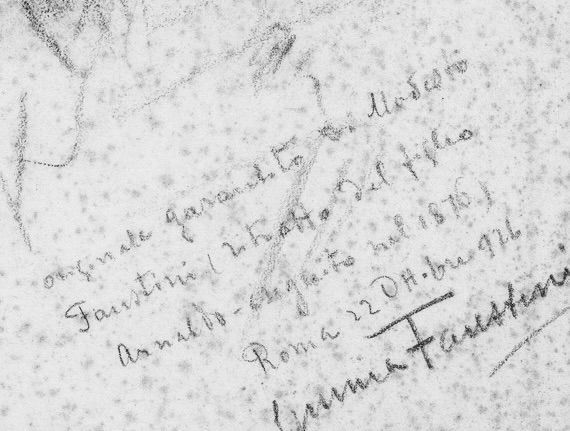 originale garantito di Modesto
Faustini (ritratto del figlio
Arnaldo - eseguito nel 1876)
Roma 22 Ott.bre 926
Faustini